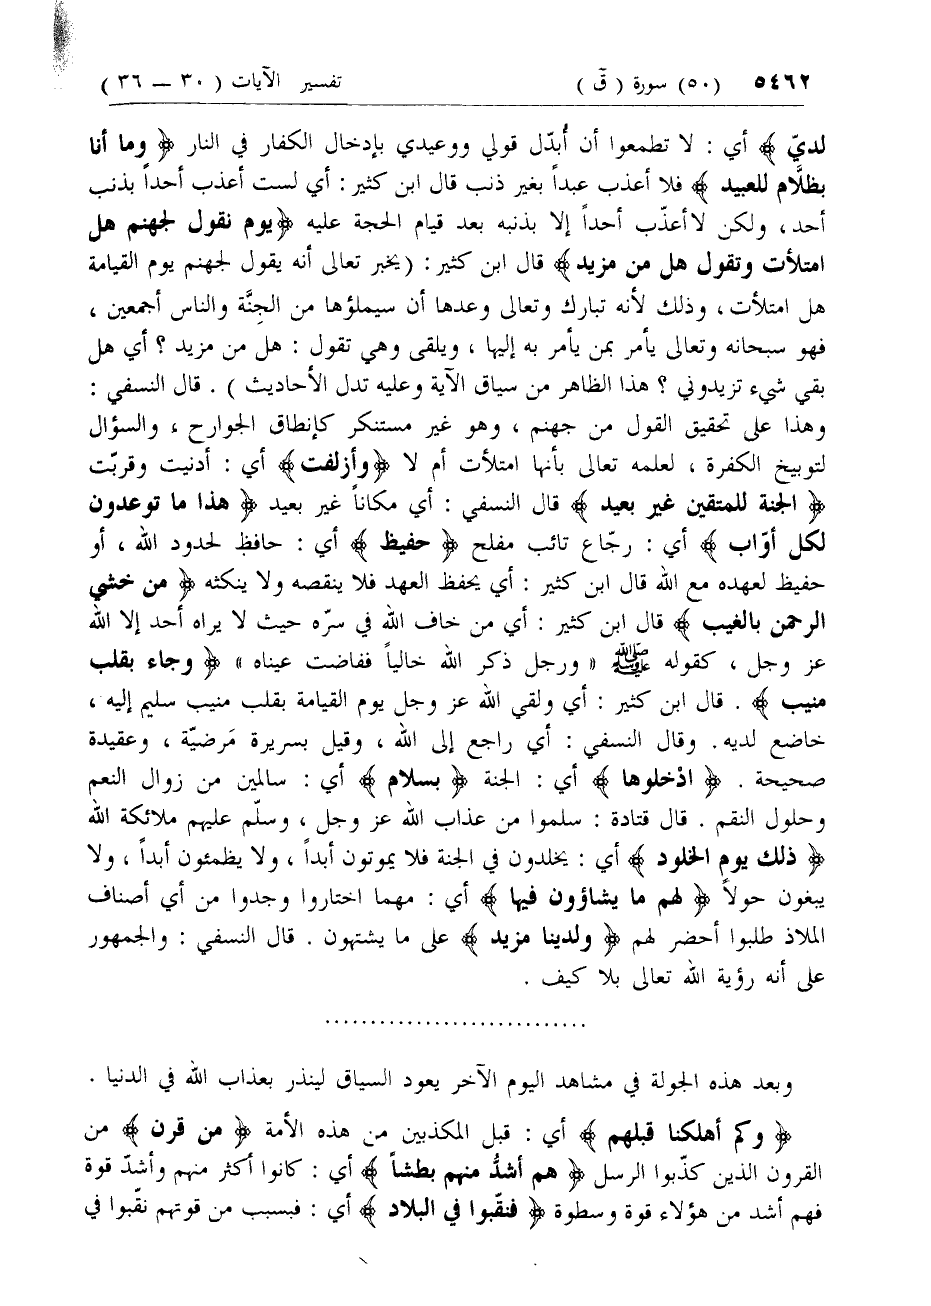 ٥٤٦٢ (٥٠) سورة ( قۤ ) تفسير الآيات ( ٣٠ ــ ٣٦ )
لديّ ﴾ أي : لا تطمعوا أن أُبدّل قولي ووعيدي بإدخال الكفار في النار ﴿ وما أنا
بظلَّام للعبيد ﴾ فلا أعذب عبداً بغير ذنب قال ابن كثير : أي لست أعذب أحداً بذنب
أحد ، ولكن لا أعذّب أحداً إلا بذنبه بعد قيام الحجة عليه ﴿ يوم نقول لجهنم هل
امتلأت وتقول هل من مزيد ﴾ قال ابن كثير : ( يخبر تعالى أنه يقول لجهنم يوم القيامة
هل امتلأت ، وذلك لأنه تبارك وتعالى وعدها أن سيملؤها من الجِنَّة والناس أجمعين ،
فهو سبحانه وتعالى يأمر بمن يأمر به إليها ، ويلقى وهي تقول : هل من مزيد ؟ أي هل
بقي شيء تزيدوني ؟ هذا الظاهر من سياق الآية وعليه تدل الأحاديث ) . قال النسفي :
وهذا على تحقيق القول من جهنم ، وهو غير مستنكر كإنطاق الجوارح ، والسؤال
لتوبيخ الكفرة ، لعلمه تعالى بأنها امتلأت أم لا ﴿ وأزلفت ﴾ أي : أدنيت وقربّت
﴿ الجنة للمتقين غير بعيد ﴾ قال النسفي : أي مكاناً غير بعيد ﴿ هذا ما توعدون
لكل أوّاب ﴾ أي : رجّاع تائب مفلح ﴿ حفيظ ﴾ أي : حافظ لحدود الله ، أو
حفيظ لعهده مع الله قال ابن كثير : أي يحفظ العهد فلا ينقصه ولا ينكثه ﴿ من خشي
الرحمن بالغيب ﴾ قال ابن كثير : أي من خاف الله في سرّه حيث لا يراه أحد إلا الله
عز وجل ، كقوله ﷺ « ورجل ذكر الله خالياً ففاضت عيناه » ﴿ وجاء بقلب
منيب ﴾ . قال ابن كثير : أي ولقي الله عز وجل يوم القيامة بقلب منيب سليم إليه ،
خاضع لديه . وقال النسفي : أي راجع إلى الله ، وقيل بسريرة مَرضيّة ، وعقيدة
صحيحة . ﴿ ادْخلوها ﴾ أي : الجنة ﴿ بسلام ﴾ أي : سالمين من زوال النعم
وحلول النقم . قال قتادة : سلموا من عذاب الله عز وجل ، وسلّم عليهم ملائكة الله
﴿ ذلك يوم الخلود ﴾ أي : يخلدون في الجنة فلا يموتون أبداً ، ولا يظمئون أبداً ، ولا
يبغون حولاً ﴿ لهم ما يشاؤون فيها ﴾ أي : مهما اختاروا وجدوا من أي أصناف
الملاذ طلبوا أحضر لهم ﴿ ولدينا مزيد ﴾ على ما يشتهون . قال النسفي : والجمهور
على أنه رؤية الله تعالى بلا كيف .
.............................
وبعد هذه الجولة في مشاهد اليوم الآخر يعود السياق لينذر بعذاب الله في الدنيا .
﴿ وكم أهلكنا قبلهم ﴾ أي : قبل المكذبين من هذه الأمة ﴿ من قرن ﴾ من
القرون الذين كذّبوا الرسل ﴿ هم أشدُّ منهم بطشاً ﴾ أي : كانوا أكثر منهم وأشدّ قوة
فهم أشد من هؤلاء قوة وسطوة ﴿ فنقّبوا في البلاد ﴾ أي : فبسبب من قوتهم نقّبوا في